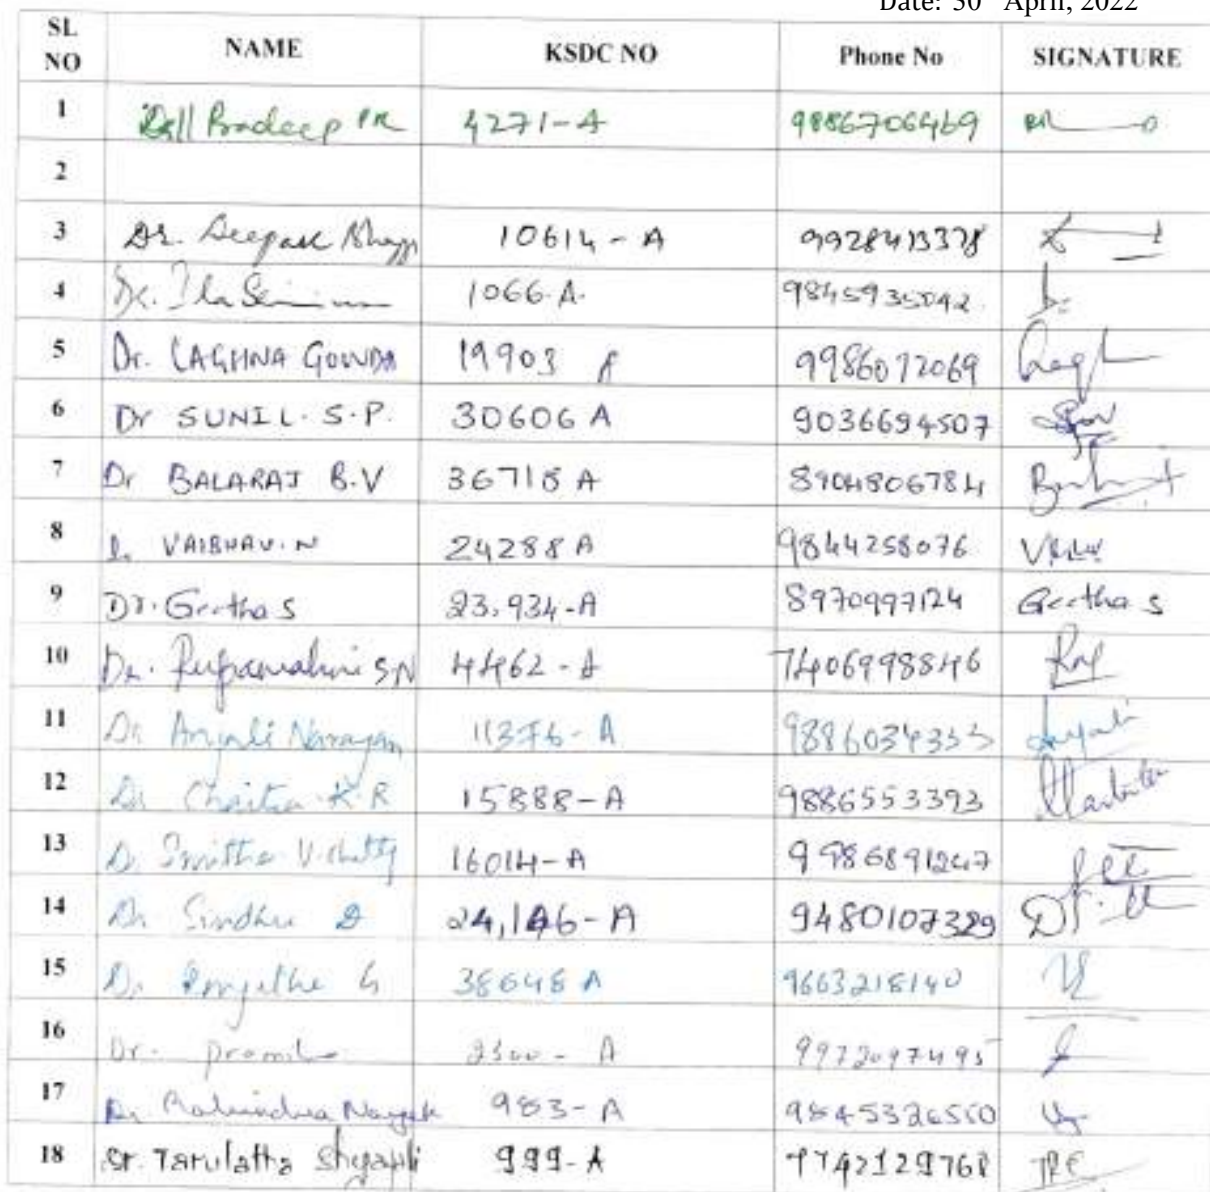 Date: 30 April, 2022
SL NO NAME KSDC NO Phone No SIGNATURE
1 Pradeep PR 4271-A 9886706469
2
3 Dr. Deepak 10614-A 9928413378
4 Dr. Ila 1066-A. 9845935042
5 Dr. LAGHNA GOWDA 19903 A 9986072069
6 Dr SUNIL. S.P. 30606 A 9036694507
7 Dr BALARAJ B.V 36718 A 8904806784
8 VAIBHAV. N 24288 A 9844258076
9 Dr. Geetha S 23,934-A 8970997124 Geetha S
10 Dr. Rupamalini SN 4462-A 7406998846
11 Dr Anjali Narayan 11376-A 9886034353 Anjali
12 Dr Chaitra K.R 15888-A 9886553393
13 Dr Smitha V. Shetty 16014-A 9986891247
14 Dr Sindhu D 24,146-A 9480107329
15 Dr G 38648 A 9663218140
16 Dr. Promila A 9972097495
17 Dr Nayak 983-A 9845326550
18 Dr. Tarulatha 999-A 9742129768